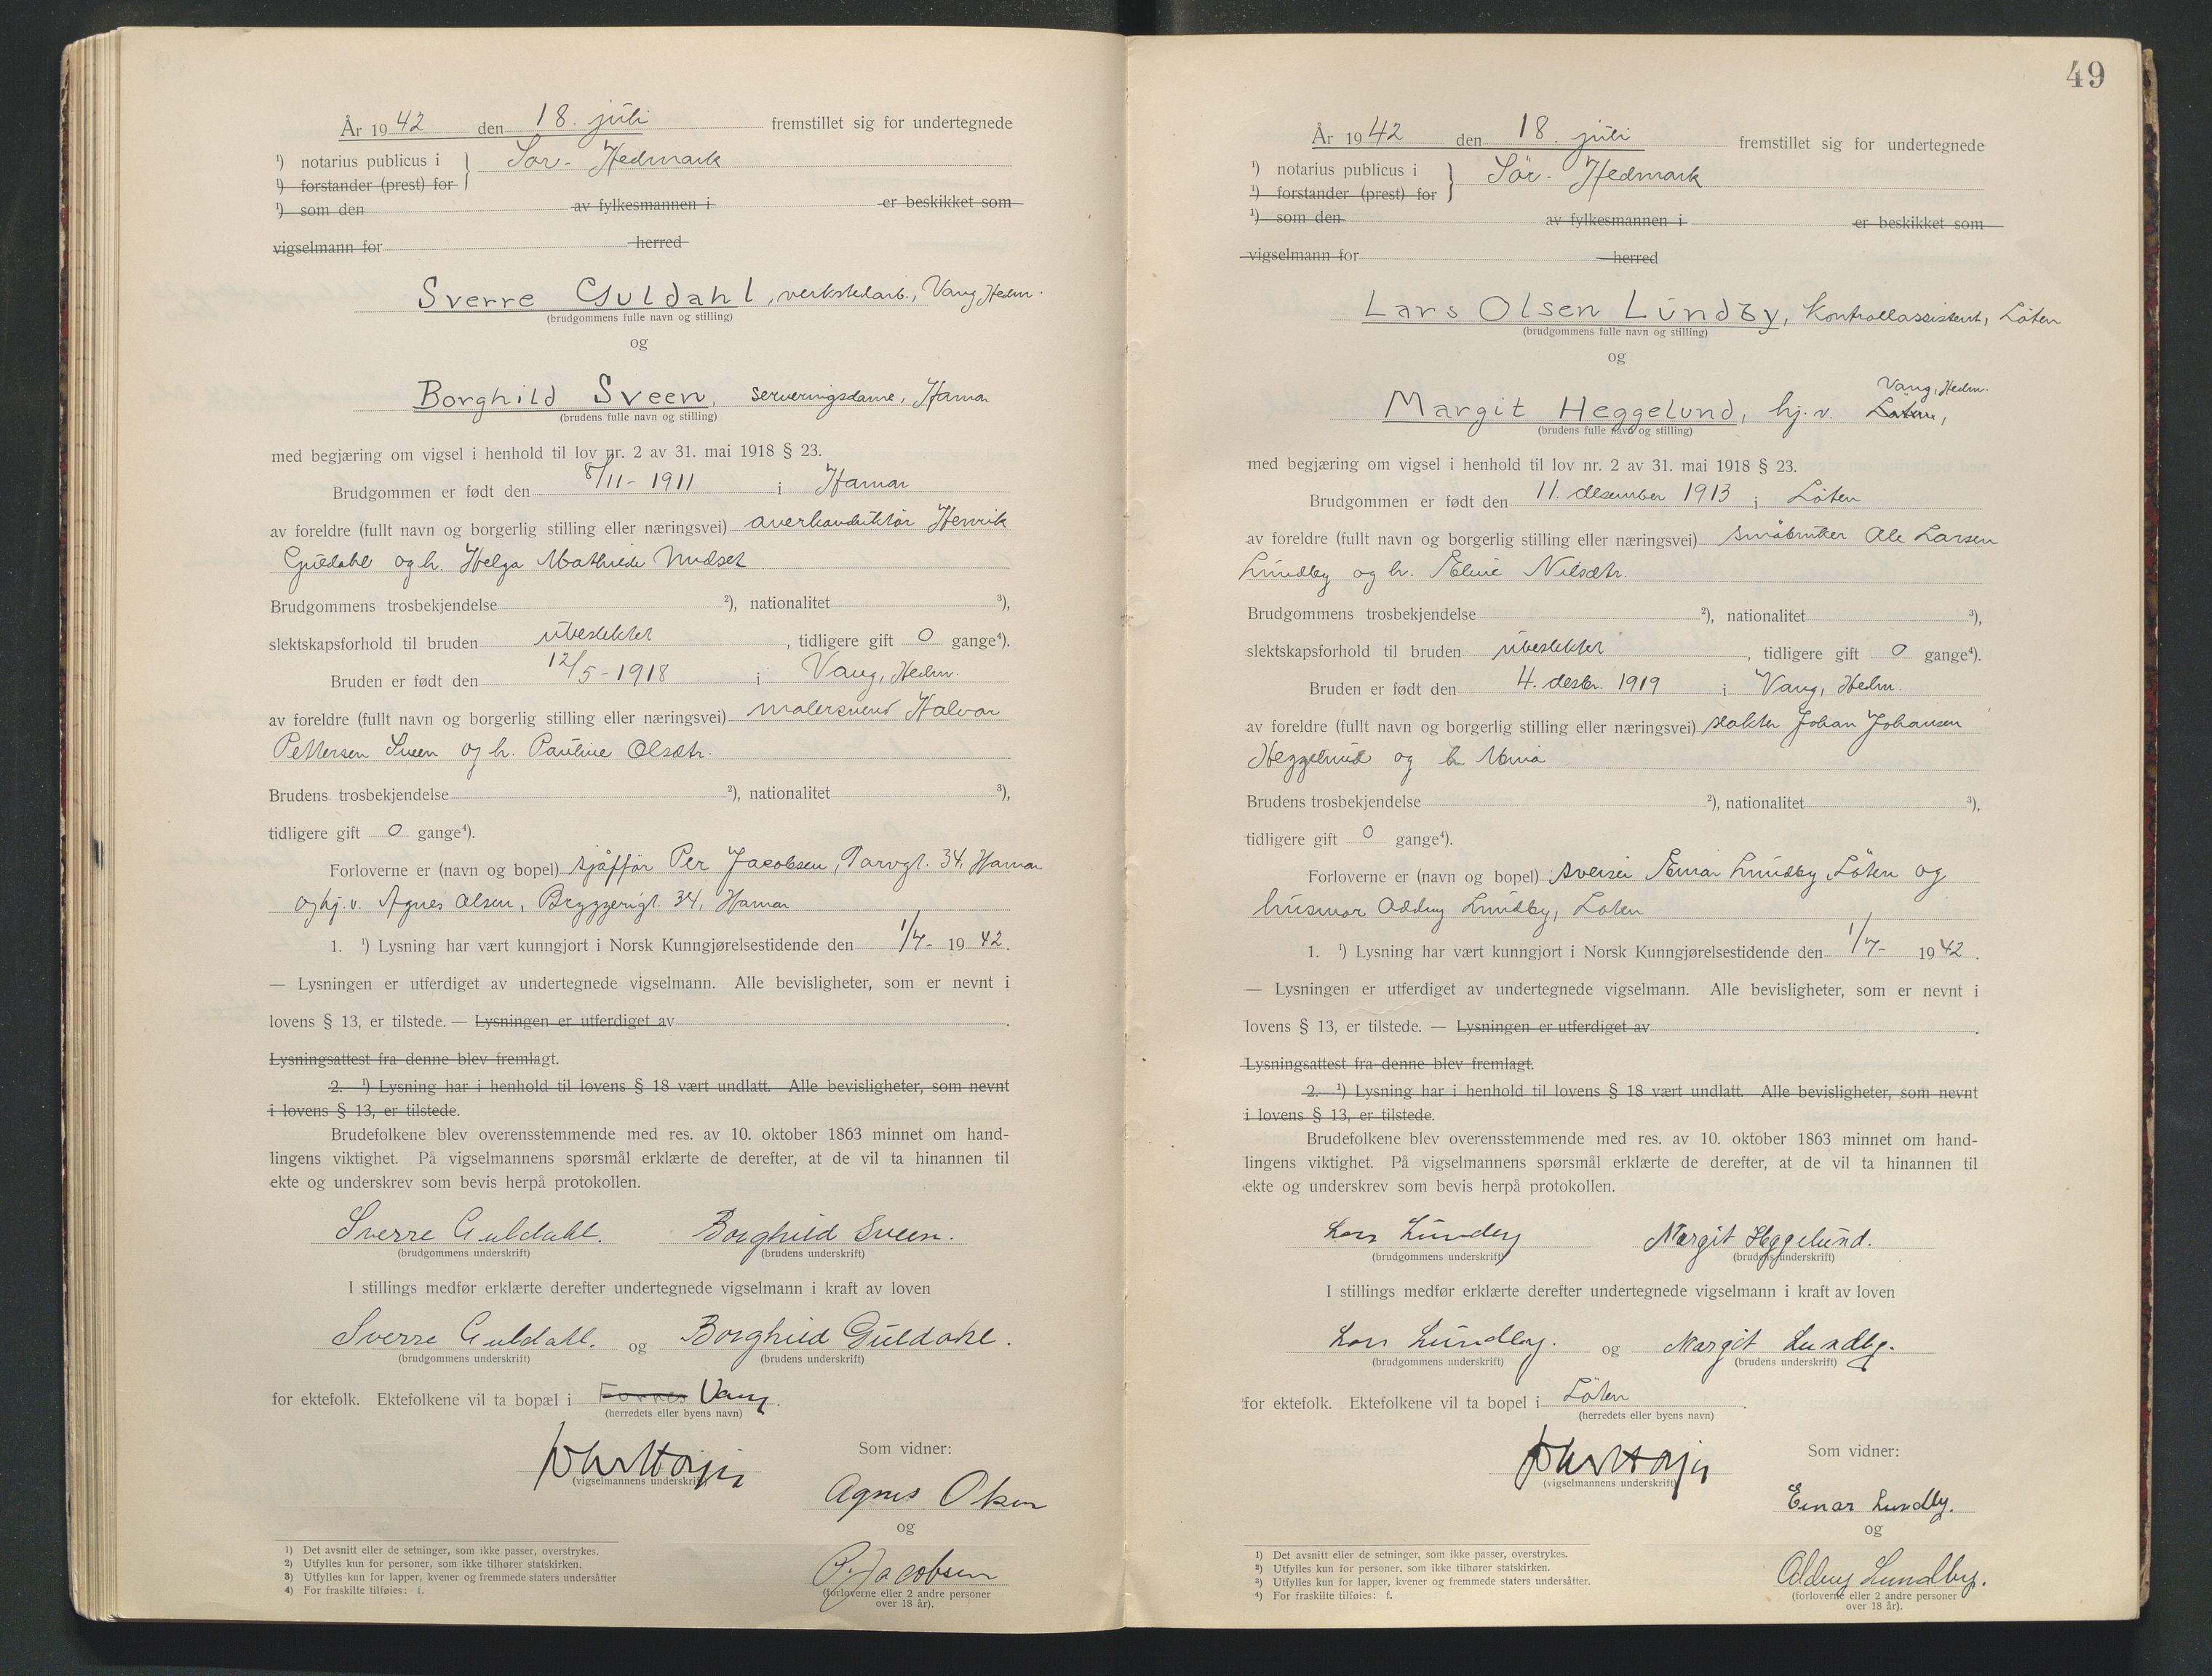 År 1942 den 18. juli fremstillet sig for undertegnede
¹) notarius publicus i } Sör-Hedmark
¹) forstander (prest) for
¹) som den av fylkesmannen i er beskikket som
vigselmann for herred
Sverre Guldahl, verkstedarb., Vang Hedm.
(brudgommens fulle navn og stilling)
og
Borghild Sveen, serveringsdame, Hamar
(brudens fulle navn og stilling)
med begjæring om vigsel i henhold til lov nr. 2 av 31. mai 1918 § 23.
Brudgommen er født den 8/11-1911 i Hamar
av foreldre (fullt navn og borgerlig stilling eller næringsvei) overkonduktör Henrik
Guldahl og h. Helga Mathilde
Brudgommens trosbekjendelse ²), nationalitet ³),
slektskapsforhold til bruden ubeslektet, tidligere gift 0 gange⁴).
Bruden er født den 12/5-1918 i Vang, Hedm.
av foreldre (fullt navn og borgerlig stilling eller næringsvei) malersvend Halvor
Pettersen Sveen og h. Pauline Olsdtr.
Brudens trosbekjendelse ²), nationalitet ³),
tidligere gift 0 gange⁴).
Forloverne er (navn og bopel) sjåfför Per Jacobsen, Torvgt. 34, Hamar
og hj.v. Agnes Olsen, Bryggerigt. 34, Hamar
1. ¹) Lysning har vært kunngjort i Norsk Kunngjørelsestidende den 1/7- 1942.
— Lysningen er utferdiget av undertegnede vigselmann. Alle bevisligheter, som er nevnt i
lovens § 13, er tilstede. — Lysningen er utferdiget av .
Lysningsattest fra denne blev fremlagt.
2. ¹) Lysning har i henhold til lovens § 18 vært undlatt. Alle bevisligheter, som nevnt
i lovens § 13, er tilstede.
Brudefolkene blev overensstemmende med res. av 10. oktober 1863 minnet om hand-
lingens viktighet. På vigselmannens spørsmål erklærte de derefter, at de vil ta hinannen til
ekte og underskrev som bevis herpå protokollen.
Sverre Guldahl. Borghild Sveen.
(brudgommens underskrift) (brudens underskrift)
I stillings medfør erklærte derefter undertegnede vigselmann i kraft av loven
Sverre Guldahl. og Borghild Guldahl.
(brudgommens underskrift) (brudens underskrift)
for ektefolk. Ektefolkene vil ta bopæl i Furnes Vang.
(herredets eller byens navn)
Som vidner:
(vigselmannens underskrift)
Agnes Olsen
og
P. Jacobsen
(forloverne eller 2 andre personer
over 18 år).
1) Det avsnitt eller de setninger, som ikke passer, overstrykes.
2) Utfylles kun for personer, som ikke tilhører statskirken.
3) Utfylles kun for lapper, kvener og fremmede staters undersåtter
4) For fraskilte tilføies: f.
49
År 1942 den 18. juli fremstillet sig for undertegnede
¹) notarius publicus i } Sör-Hedmark
¹) forstander (prest) for
¹) som den av fylkesmannen i er beskikket som
vigselmann for herred
Lars Olsen Lundby, kontrollassistent, Löten
(brudgommens fulle navn og stilling)
og
Vang, Hedm.
Margit Heggelund, hj.v. Löten,
(brudens fulle navn og stilling)
med begjæring om vigsel i henhold til lov nr. 2 av 31. mai 1918 § 23.
Brudgommen er født den 11. desember 1913 i Löten
av foreldre (fullt navn og borgerlig stilling eller næringsvei) småbruker Ole Larsen
Lundby og h. Eline Nilsdtr.
Brudgommens trosbekjendelse ²), nationalitet ³),
slektskapsforhold til bruden ubeslektet, tidligere gift 0 gange⁴).
Bruden er født den 4. desbr. 1919 i Vang, Hedm.
av foreldre (fullt navn og borgerlig stilling eller næringsvei) slakter Johan Johansen
Heggelund og h.
Brudens trosbekjendelse ²), nationalitet ³),
tidligere gift 0 gange⁴).
Forloverne er (navn og bopel) sveiser Einar Lundby Löten og
husmor Oddny Lundby, Löten
1. ¹) Lysning har vært kunngjort i Norsk Kunngjørelsestidende den 1/7- 1942.
— Lysningen er utferdiget av undertegnede vigselmann. Alle bevisligheter, som er nevnt i
lovens § 13, er tilstede. — Lysningen er utferdiget av .
Lysningsattest fra denne blev fremlagt.
2. ¹) Lysning har i henhold til lovens § 18 vært undlatt. Alle bevisligheter, som nevnt
i lovens § 13, er tilstede.
Brudefolkene blev overensstemmende med res. av 10. oktober 1863 minnet om hand-
lingens viktighet. På vigselmannens spørsmål erklærte de derefter, at de vil ta hinannen til
ekte og underskrev som bevis herpå protokollen.
Lars Lundby Margit Heggelund.
(brudgommens underskrift) (brudens underskrift)
I stillings medfør erklærte derefter undertegnede vigselmann i kraft av loven
Lars Lundby. og Margit Lundby.
(brudgommens underskrift) (brudens underskrift)
for ektefolk. Ektefolkene vil ta bopel i Löten.
(herredets eller byens navn)
Som vidner:
(vigselmannens underskrift)
Einar Lundby.
og
Oddny Lundby.
(forloverne eller 2 andre personer
over 18 år).
1) Det avsnitt eller de setninger, som ikke passer, overstrykes.
2) Utfylles kun for personer, som ikke tilhører statskirken.
3) Utfylles kun for lapper, kvener og fremmede staters undersåtter.
4) For fraskilte tilføies: f.